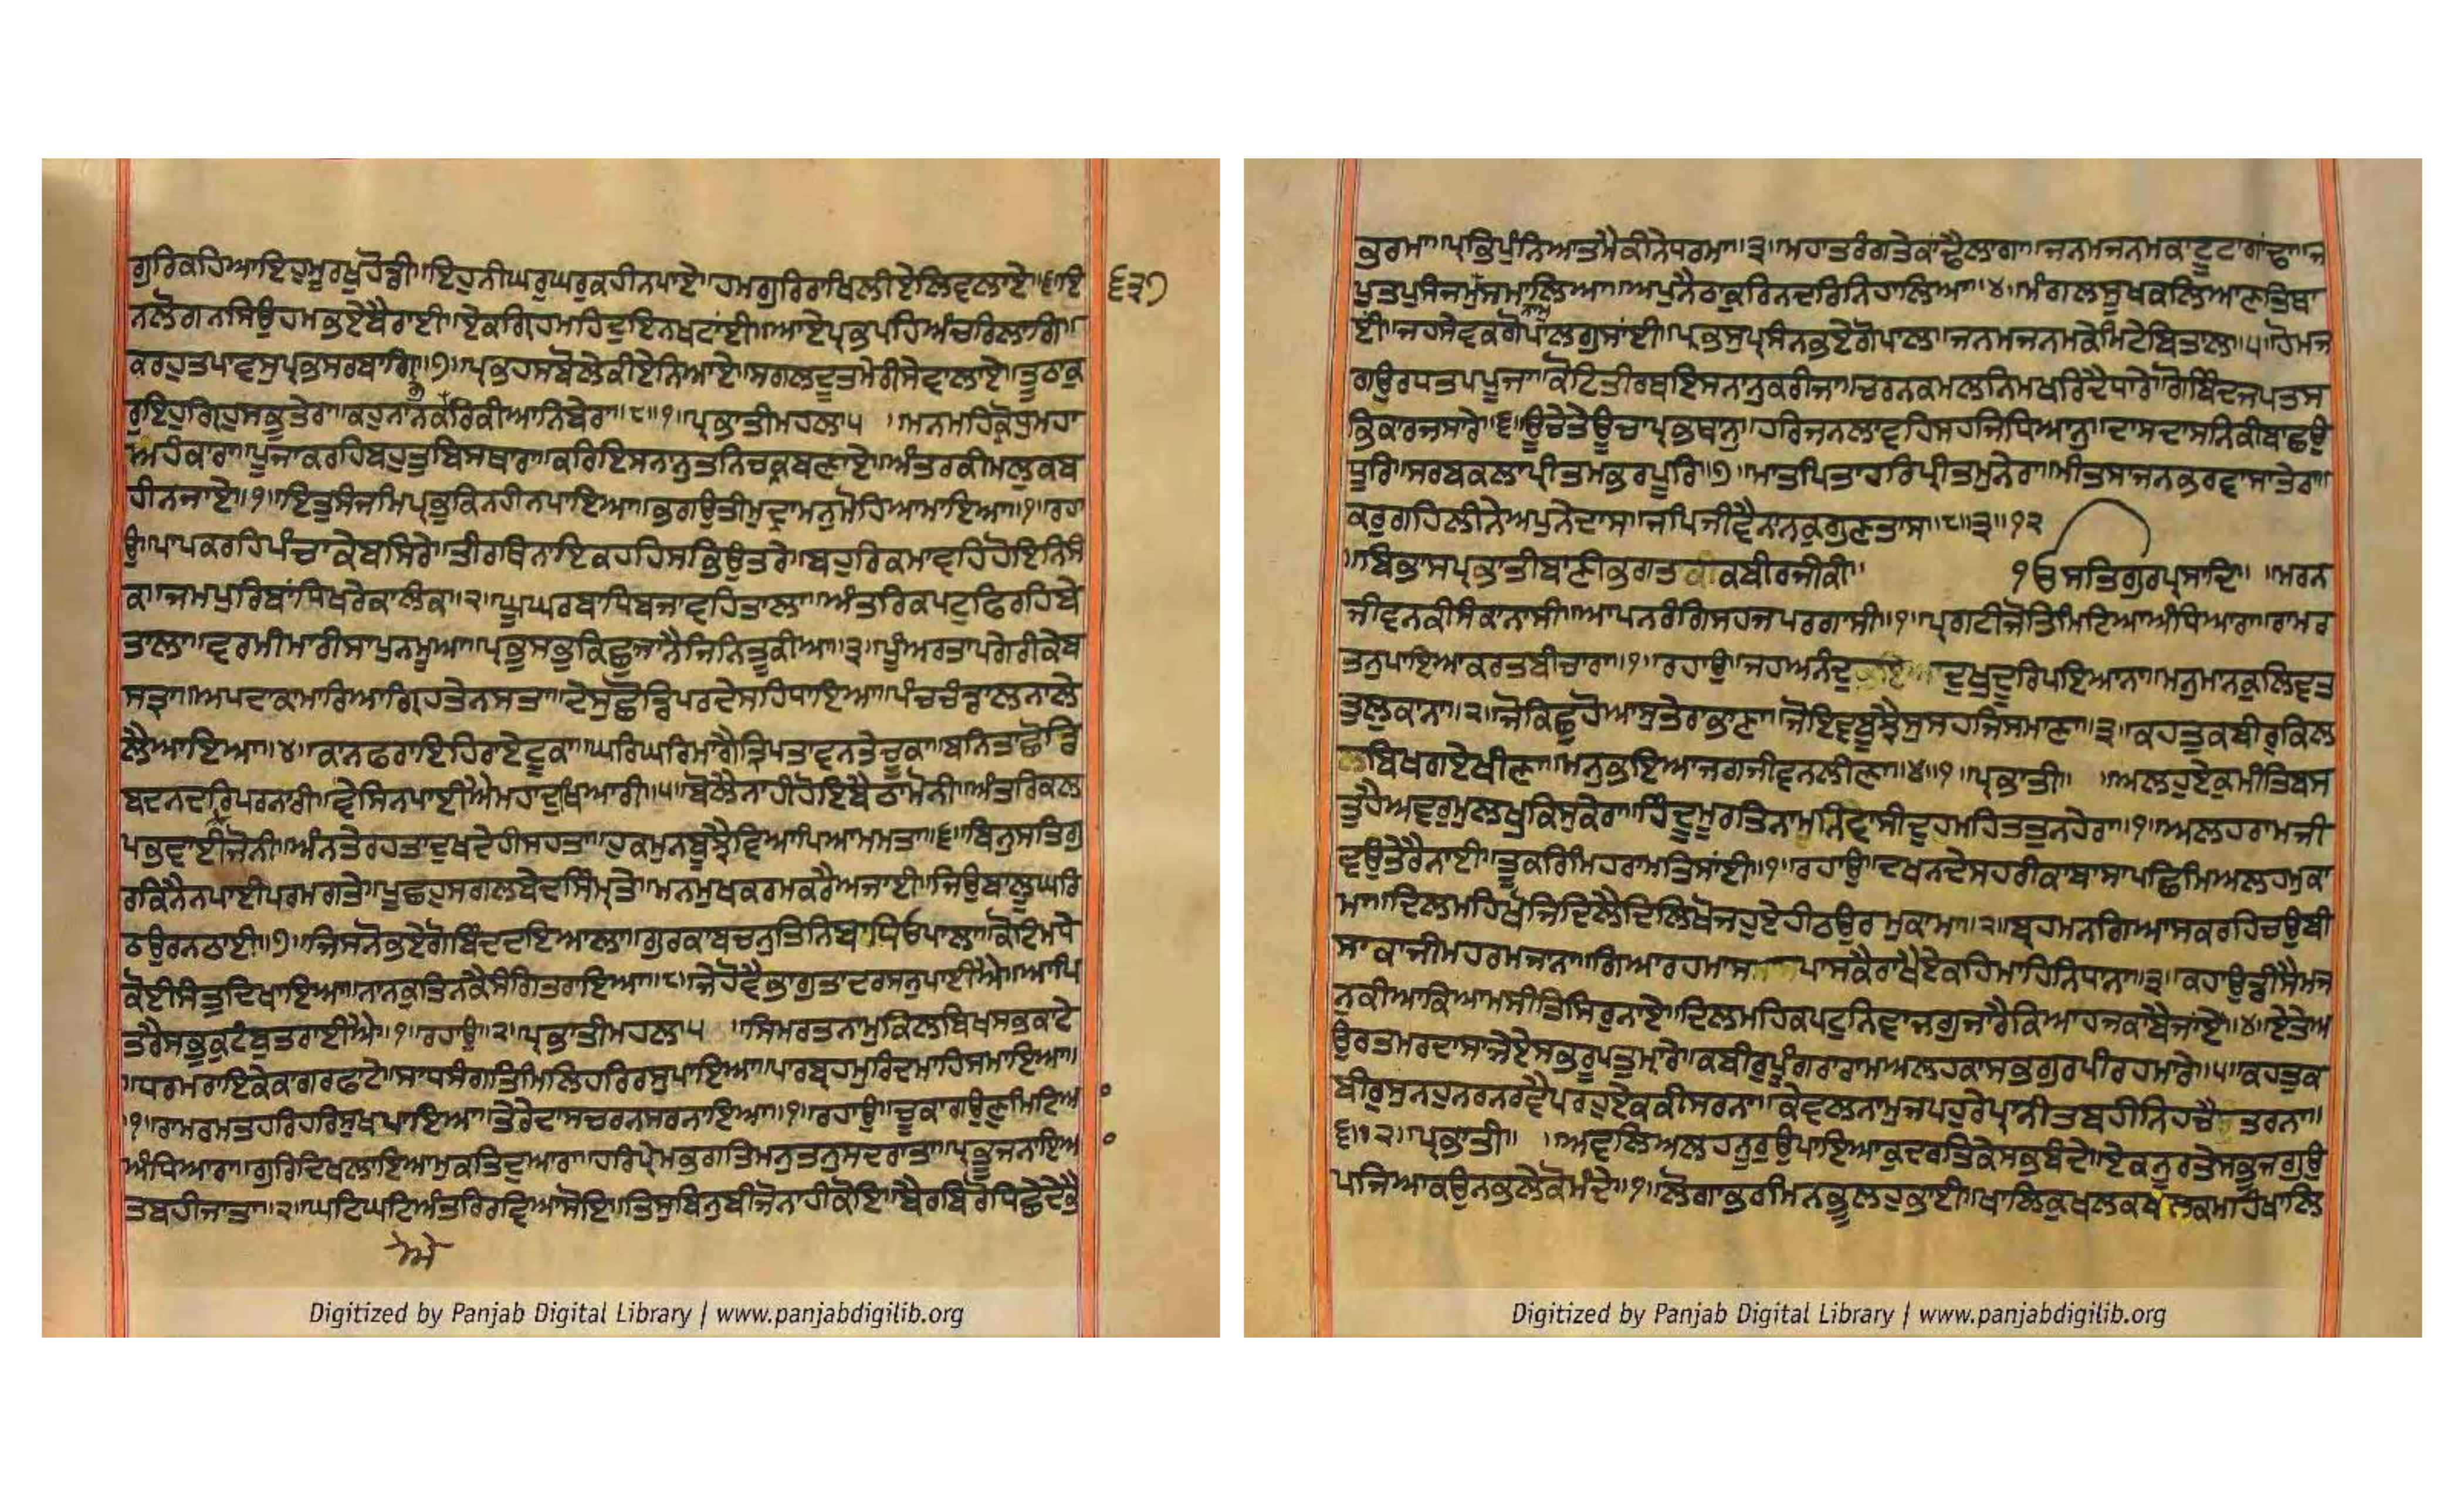 ਗੁਰਿਕਹਿਆਇਹੁਮੂਰਖੁਹੋਛੀ॥ਇਹੁਨੀਘਰੁਘਰੁਕਹੀਨਪਾਏ॥ਹਮਗੁਰਿਰਾਖਿਲੀਏਲਿਵਲਾਏ॥੬॥ਇ
੬੩੭
ਨਲੋਗਨਸਿਉਹਮਭਏਬੈਰਾਈ॥ਏਕਗ੍ਰਿਹਮਹਿਦੁਇਨਖਟਾਂਈ॥ਆਏਪ੍ਰਭਪਹਿਅੰਚਰਿਲਾਗਿ॥
ਕਰਹੁਤਪਾਵਸੁਪ੍ਰਭਸਰਬਾਗਿ॥੭॥ਪ੍ਰਭਹਸਬੋਲੇਕੀਏਨਿਆਏ॥ਸਗਲਦੂਤਮੇਰੀਸੇਵਾਲਾਏ॥ਤੂਠਾਕੁ
ਰੁਇਹੁਗ੍ਰਿਹੁਸਭੁਤੇਰਾ॥ਕਹੁਨਾਨਕਗੁਰਿਕੀਆਨਿਬੇਰਾ॥੮॥੧॥ਪ੍ਰਭਾਤੀਮਹਲਾ੫ ॥ਮਨਮਹਿਕ੍ਰੋਧੁਮਹਾ
ਅਹੰਕਾਰਾ॥ਪੂਜਾਕਰਹਿਬਹੁਤੁਬਿਸਥਾਰਾ॥ਕਰਿਇਸਨਾਨੁਤਨਿਚਕ੍ਰਬਣਾਏ॥ਅੰਤਰਕੀਮਲੁਕਬ
ਹੀਨਜਾਏ॥੧॥ਇਤੁਸੰਜਮਿਪ੍ਰਭੁਕਿਨਹੀਨਪਾਇਆ॥ਭਗਉਤੀਮੁਦ੍ਰਾਮਨੁਮੋਹਿਆਮਾਇਆ॥੧॥ਰਹਾ
ਉ॥ਪਾਪਕਰਹਿਪੰਚਾਕੇਬਸਿਰੇ॥ਤੀਰਥਿਨਾਇਕਹਹਿਸਭਿਉਤਰੇ॥ਬਹੁਰਿਕਮਾਵਹਿਹੋਇਨਿਸੰ
ਕਾ॥ਜਮਪੁਰਿਬਾਂਧਿਖਰੇਕਾਲੰਕਾ॥੨॥ਘੂਘਰਬਾਧਿਬਜਾਵਹਿਤਾਲਾ॥ਅੰਤਰਿਕਪਟੁਫਿਰਹਿਬੇ
ਤਾਲਾ॥ਵਰਮੀਮਾਰੀਸਾਪੁਨਮੂਆ॥ਪ੍ਰਭੁਸਭੁਕਿਛੁਜਾਨੈਜਿਨਿਤੂਕੀਆ॥੩॥ਪੂੰਅਰਤਾਪਗੇਰੀਕੇਬ
ਸਤ੍ਰਾ॥ਅਪਦਾਕਾਮਾਰਿਆਗ੍ਰਿਹਤੇਨਸਤਾ॥ਦੇਸੁਛੋਡਿਪਰਦੇਸਹਿਧਾਇਆ॥ਪੰਚਚੰਡਾਲਨਾਲੇ
ਲੈਆਇਆ॥੪॥ਕਾਨਫਰਾਇਹਿਰਾਏਟੂਕਾ॥ਘਰਿਘਰਿਮਾਂਗੈਤ੍ਰਿਪਤਾਵਨਤੇਚੂਕਾ॥ਬਨਿਤਾਛੋਡਿ
ਬਦਨਦਰਿਪਰਨਾਰੀ॥ਵੇਸਿਨਪਾਈਐਮਹਾਦੁਖਿਆਰੀ॥੫॥ਬੋਲੈਨਾਹੀਹੋਇਬੈਠਾਮੋਨੀ॥ਅੰਤਰਿਕਲ
ਪਭਵਾਈਜੋਨੀ॥ਅੰਨਤੇਰਹਤਾਦੁਖਦੇਹੀਸਹਤਾ॥ਹੁਕਮੁਨਬੂਝੈਵਿਆਪਿਆਮਮਤਾ॥੬॥ਬਿਨੁਸਤਿਗੁ
ਰਕਿਨੈਨਪਾਈਪਰਮਗਤੇ॥ਪੂਛਹੁਸਗਲਬੇਦਸਿੰਮ੍ਰਤੇ॥ਮਨਮੁਖਕਰਮਕਰੈਅਜਾਈ॥ਜਿਉਬਾਲੂਘਰਿ
ਠਉਰਨਠਾਈ॥੭॥ਜਿਸਨੋਭਏਗੋਬਿੰਦਦਇਆਲਾ॥ਗੁਰਕਾਬਚਨੁਤਿਨਿਬਾਧਿਓਪਾਲਾ॥ਕੋਟਿਮਧੇ
ਕੋਈਸੰਤੁਦਿਖਾਇਆ॥ਨਾਨਕੁਤਿਨਕੈਸੰਗਿਤਰਾਇਆ॥੮॥ਜੇਹੋਵੈਭਾਗੁਤਾਦਰਸਨੁਪਾਈਐ॥ਆਪਿ
ਤਰੈਸਭੁਕੁਟੰਬੁਤਰਾਈਐ॥੧॥ਰਹਾਉ॥੨॥ਪ੍ਰਭਾਤੀਮਹਲਾ੫ ॥ਸਿਮਰਤਨਾਮੁਕਿਲਬਿਖਸਭਕਾਟੇ
॥ਧਰਮਰਾਇਕੇਕਾਗਰਫਾਟੇ॥ਸਾਧਸੰਗਤਿਮਿਲਿਹਰਿਰਸੁਪਾਇਆ॥ਪਾਰਬ੍ਰਹਮੁਰਿਦਮਾਹਿਸਮਾਇਆ॥
॥੧॥ਰਾਮਰਮਤਹਰਿਹਰਿਸੁਖੁਪਾਇਆ॥ਤੇਰੇਦਾਸਚਰਨਸਰਨਾਇਆ॥੧॥ਰਹਾਉ॥ਚੂਕਾਗਉਣੁਮਿਟਿਆ
ਅੰਧਿਆਰਾ॥ਗੁਰਿਦਿਖਲਾਇਆਮੁਕਤਿਦੁਆਰਾ॥ਹਰਿਪ੍ਰੇਮਭਗਤਿਮਨੁਤਨੁਸਦਰਾਤਾ॥ਪ੍ਰਭੂਜਨਾਇਆ
ਤਬਹੀਜਾਤਾ॥੨॥ਘਟਿਘਟਿਅੰਤਰਿਰਵਿਆਸੋਇ॥ਤਿਸੁਬਿਨੁਬੀਜੋਨਾਹੀਕੋਇ॥ਬੈਰਬਿਰੋਧਛੇਦੇਭੈ
ਭਰਮਾ॥ਪ੍ਰਭਿਪੁੰਨਿਆਤਮੈਕੀਨੇਧਰਮਾ॥੩॥ਮਹਾਤਰੰਗਤੇਕਾਂਢੈਲਾਗਾ॥ਜਨਮਜਨਮਕਾਟੂਟਾਗਾਂਢਾ॥ਜ
ਪੁਤਪੁਸੰਜਮੁਨਾਮੁਸਮਾਲਿਆ॥ਅਪੁਨੈਠਾਕੁਰਿਨਦਰਿਨਿਹਾਲਿਆ॥੪॥ਮੰਗਲਸੂਖਕਲਿਆਣਤਿਥਾ
ਈਂ॥ਜਹਸੇਵਕਗੋਪਾਲਗੁਸਾਈ॥ਪ੍ਰਭਸੁਪ੍ਰਸੰਨਭਏਗੋਪਾਲ॥ਜਨਮਜਨਮਕੇਮਿਟੇਬਿਤਾਲ॥੫॥ਹੋਮਜ
ਗਉਰਧਤਪਪੂਜਾ॥ਕੋਟਿਤੀਰਥਇਸਨਾਨੁਕਰੀਜਾ॥ਚਰਨਕਮਲਨਿਮਖਰਿਦੈਧਾਰੇ॥ਗੋਬਿੰਦਜਪਤਸ
ਭਿਕਾਰਜਸਾਰੇ॥੬॥ਊਚੇਤੇਊਚਾਪ੍ਰਭਥਾਨੁ॥ਹਰਿਜਨਲਾਵਹਿਸਹਜਿਧਿਆਨੁ॥ਦਾਸਦਾਸਨਿਕੀਬਾਛਉ
ਧੂਰਿ॥ਸਰਬਕਲਾਪ੍ਰੀਤਮਭਰਪੂਰਿ॥੭॥ਮਾਤਪਿਤਾਹਰਿਪ੍ਰੀਤਮੁਨੇਰਾ॥ਮੀਤਸਾਜਨਭਰਵਾਸਾਤੇਰਾ॥
ਕਰੁਗਹਿਲੀਨੇਅਪੁਨੇਦਾਸ॥ਜਪਿਜੀਵੈਨਾਨਕੁਗੁਣਤਾਸ॥੮॥੩॥੧੨
॥ਬਿਭਾਸਪ੍ਰਭਾਤੀਬਾਣੀਭਗਤਕੀਕਬੀਰਜੀਕੀ॥ ੴਸਤਿਗੁਰਪ੍ਰਸਾਦਿ॥ ॥ਮਰਨ
ਜੀਵਨਕੀਸੰਕਾਨਾਸੀ॥ਆਪਨਰੰਗਿਸਹਜਪਰਗਾਸੀ॥੧॥ਪ੍ਰਗਟੀਜੋਤਿਮਿਟਿਆਅੰਧਿਆਰਾ॥ਰਾਮਰ
ਤਨੁਪਾਇਆਕਰਤਬੀਚਾਰਾ॥੧॥ਰਹਾਉ॥ਜਹਅਨੰਦੁ ਦੁਖੁਦੂਰਿਪਇਆਨਾ॥ਮਨੁਮਾਨਕੁਲਿਵਤ
ਤੁਲੁਕਾਨਾ॥੨॥ਜੋਕਿਛੁਹੋਆਸੁਤੇਰਾਭਾਣਾ॥ਜੋਇਵਬੂਝੈਸੁਸਹਜਿਸਮਾਣਾ॥੩॥ਕਹਤੁਕਬੀਰੁਕਿਲ
ਬਿਖਗਏਖੀਣਾ॥ਮਨੁਭਇਆਜਗਜੀਵਨਲੀਣਾ॥੪॥੧॥ਪ੍ਰਭਾਤੀ॥ ॥ਅਲਹੁਏਕੁਮਸੀਤਿਬਸ
ਤੁਹੈਅਵਰੁਮੁਲਖੁਕਿਸੁਕੇਰਾ॥ਹਿੰਦੂਮੂਰਤਿਨਾਮਨਿਵਾਸੀਦੁਹਮਹਿਤਤੁਨਹੇਰਾ॥੧॥ਅਲਹਰਾਮਜੀ
ਵਉਤੇਰੈਨਾਈ॥ਤੂਕਰਿਮਿਹਰਾਮਤਿਸਾਂਈ॥੧॥ਰਹਾਉ॥ਦਖਨਦੇਸਹਰੀਕਾਬਾਸਾਪਛਿਮਿਅਲਹਮੁਕਾ
ਮਾ॥ਦਿਲਮਹਿਖੋਜਿਦਿਲੈਦਿਲਿਖੋਜਹੁਏਹੀਠਉਰਮੁਕਾਮਾ॥੨॥ਬ੍ਰਹਮਨਗਿਆਸਕਰਹਿਚਉਬੀ
ਸਾਕਾਜੀਮਹਰਮਜਾਨਾ॥ਗਿਆਰਹਮਾਸ ਪਾਸਕੈਰਾਖੈਏਕਹਿਮਾਹਿਨਿਧਾਨਾ॥੩॥ਕਹਾਉਡੀਸੇਮਜ
ਨੁਕੀਆਕਿਆਮਸੀਤਿਸਿਰੁਨਾਏ॥ਦਿਲਮਹਿਕਪਟੁਨਿਵਾਜਗੁਜਾਰੈਕਿਆਹਜਕਾਬੈਜਾਂਏ॥੪॥ਏਤੇਅ
ਉਰਤਮਰਦਾਸਾਜੇਏਸਭਰੂਪਤੁਮਾਰੇ॥ਕਬੀਰੁਪੂੰਗਰਾਰਾਮਅਲਹਕਾਸਭਗੁਰਪੀਰਹਮਾਰੇ॥੫॥ਕਹਤੁਕ
ਬੀਰੁਸੁਨਹੁਨਰਨਰਵੈਪਰਹੁਏਕਕੀਸਰਨਾ॥ਕੇਵਲਨਾਮੁਜਪਹੁਰੇਪ੍ਰਾਨੀਤਬਹੀਨਿਹਚੈ ਤਰਨਾ॥
੬॥੨॥ਪ੍ਰਭਾਤੀ॥ ॥ਅਵਲਿਅਲਹਨੂਰੁਉਪਾਇਆਕੁਦਰਤਿਕੇਸਭਬੰਦੇ॥ਏਕਨੂਰਤੇਸਭੁਜਗੁਉ
ਪਜਿਆਕਉਨਭਲੇਕੋਮੰਦੇ॥੧॥ਲੋਗਾਭਰਮਿਨਭੂਲਹੁਭਾਈ॥ਖਾਲਿਕੁਖਲਕਖਲਕਮਹਿਖਾਲਿ
Digitized by Panjab Digital Library | www.panjabdigilib.org
Digitized by Panjab Digital Library | www.panjabdigilib.org